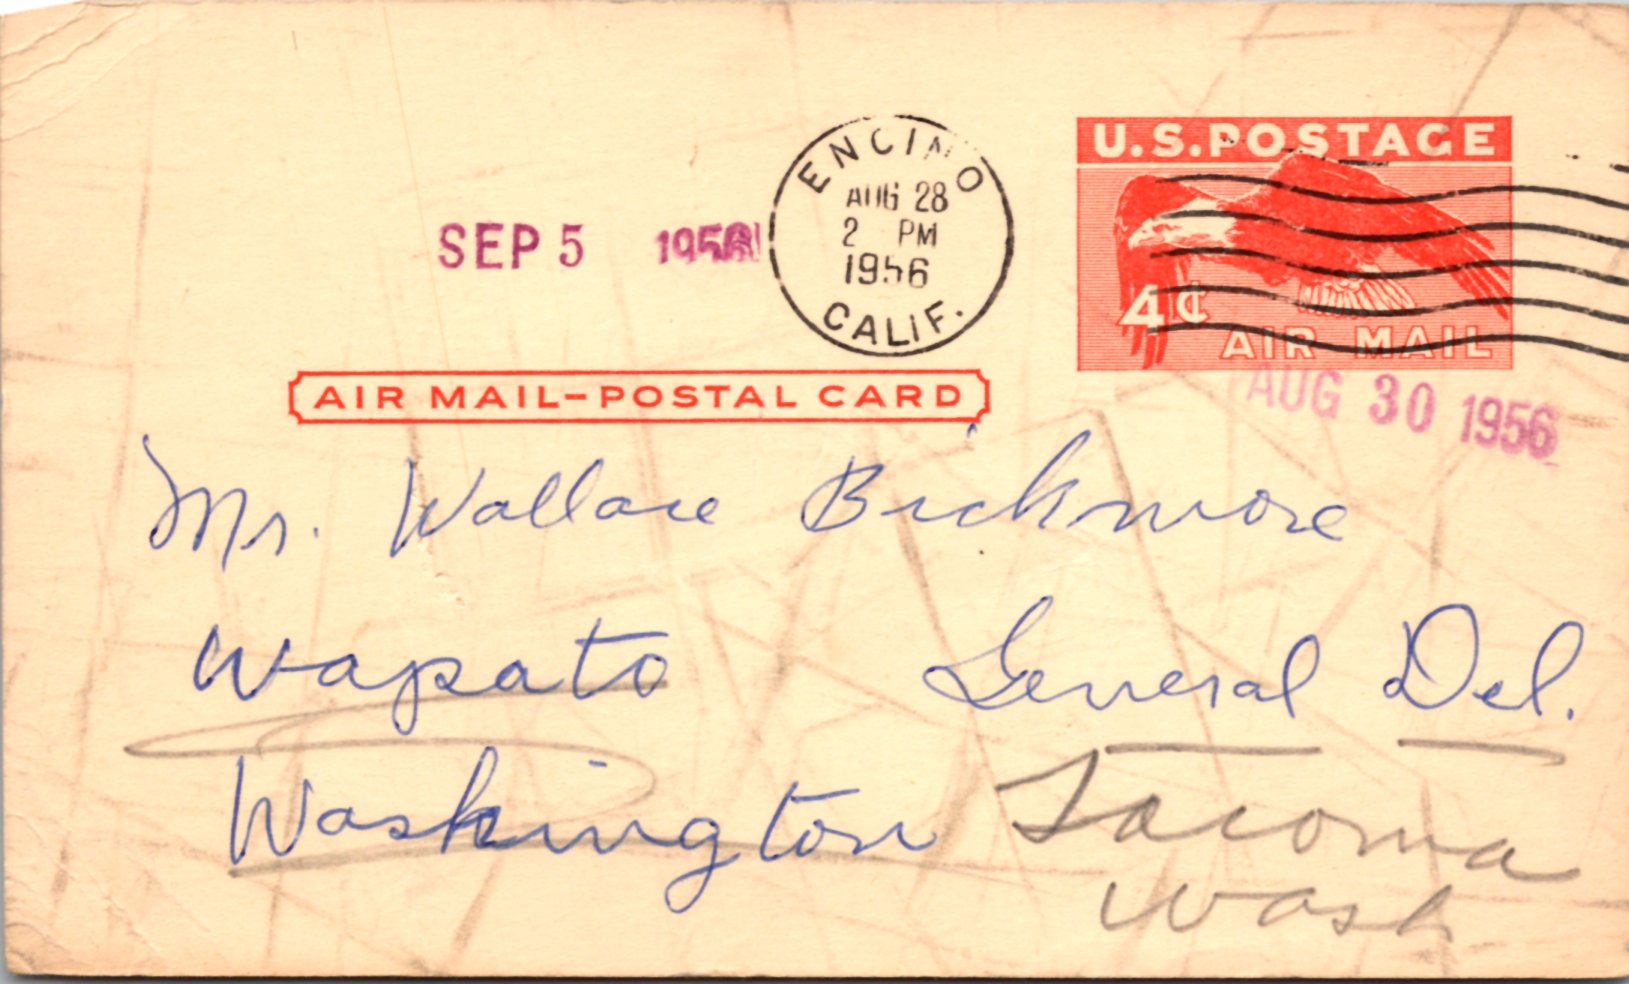 ENCINO
AUG 28
2 PM
1956
CALIF.
U.S. POSTAGE
4¢
AIR MAIL
SEP 5 1956
AIR MAIL-POSTAL CARD
AUG 30 1956
Mr. Wallace Bickmore
Wapato General Del.
Washington Tacoma
Wash